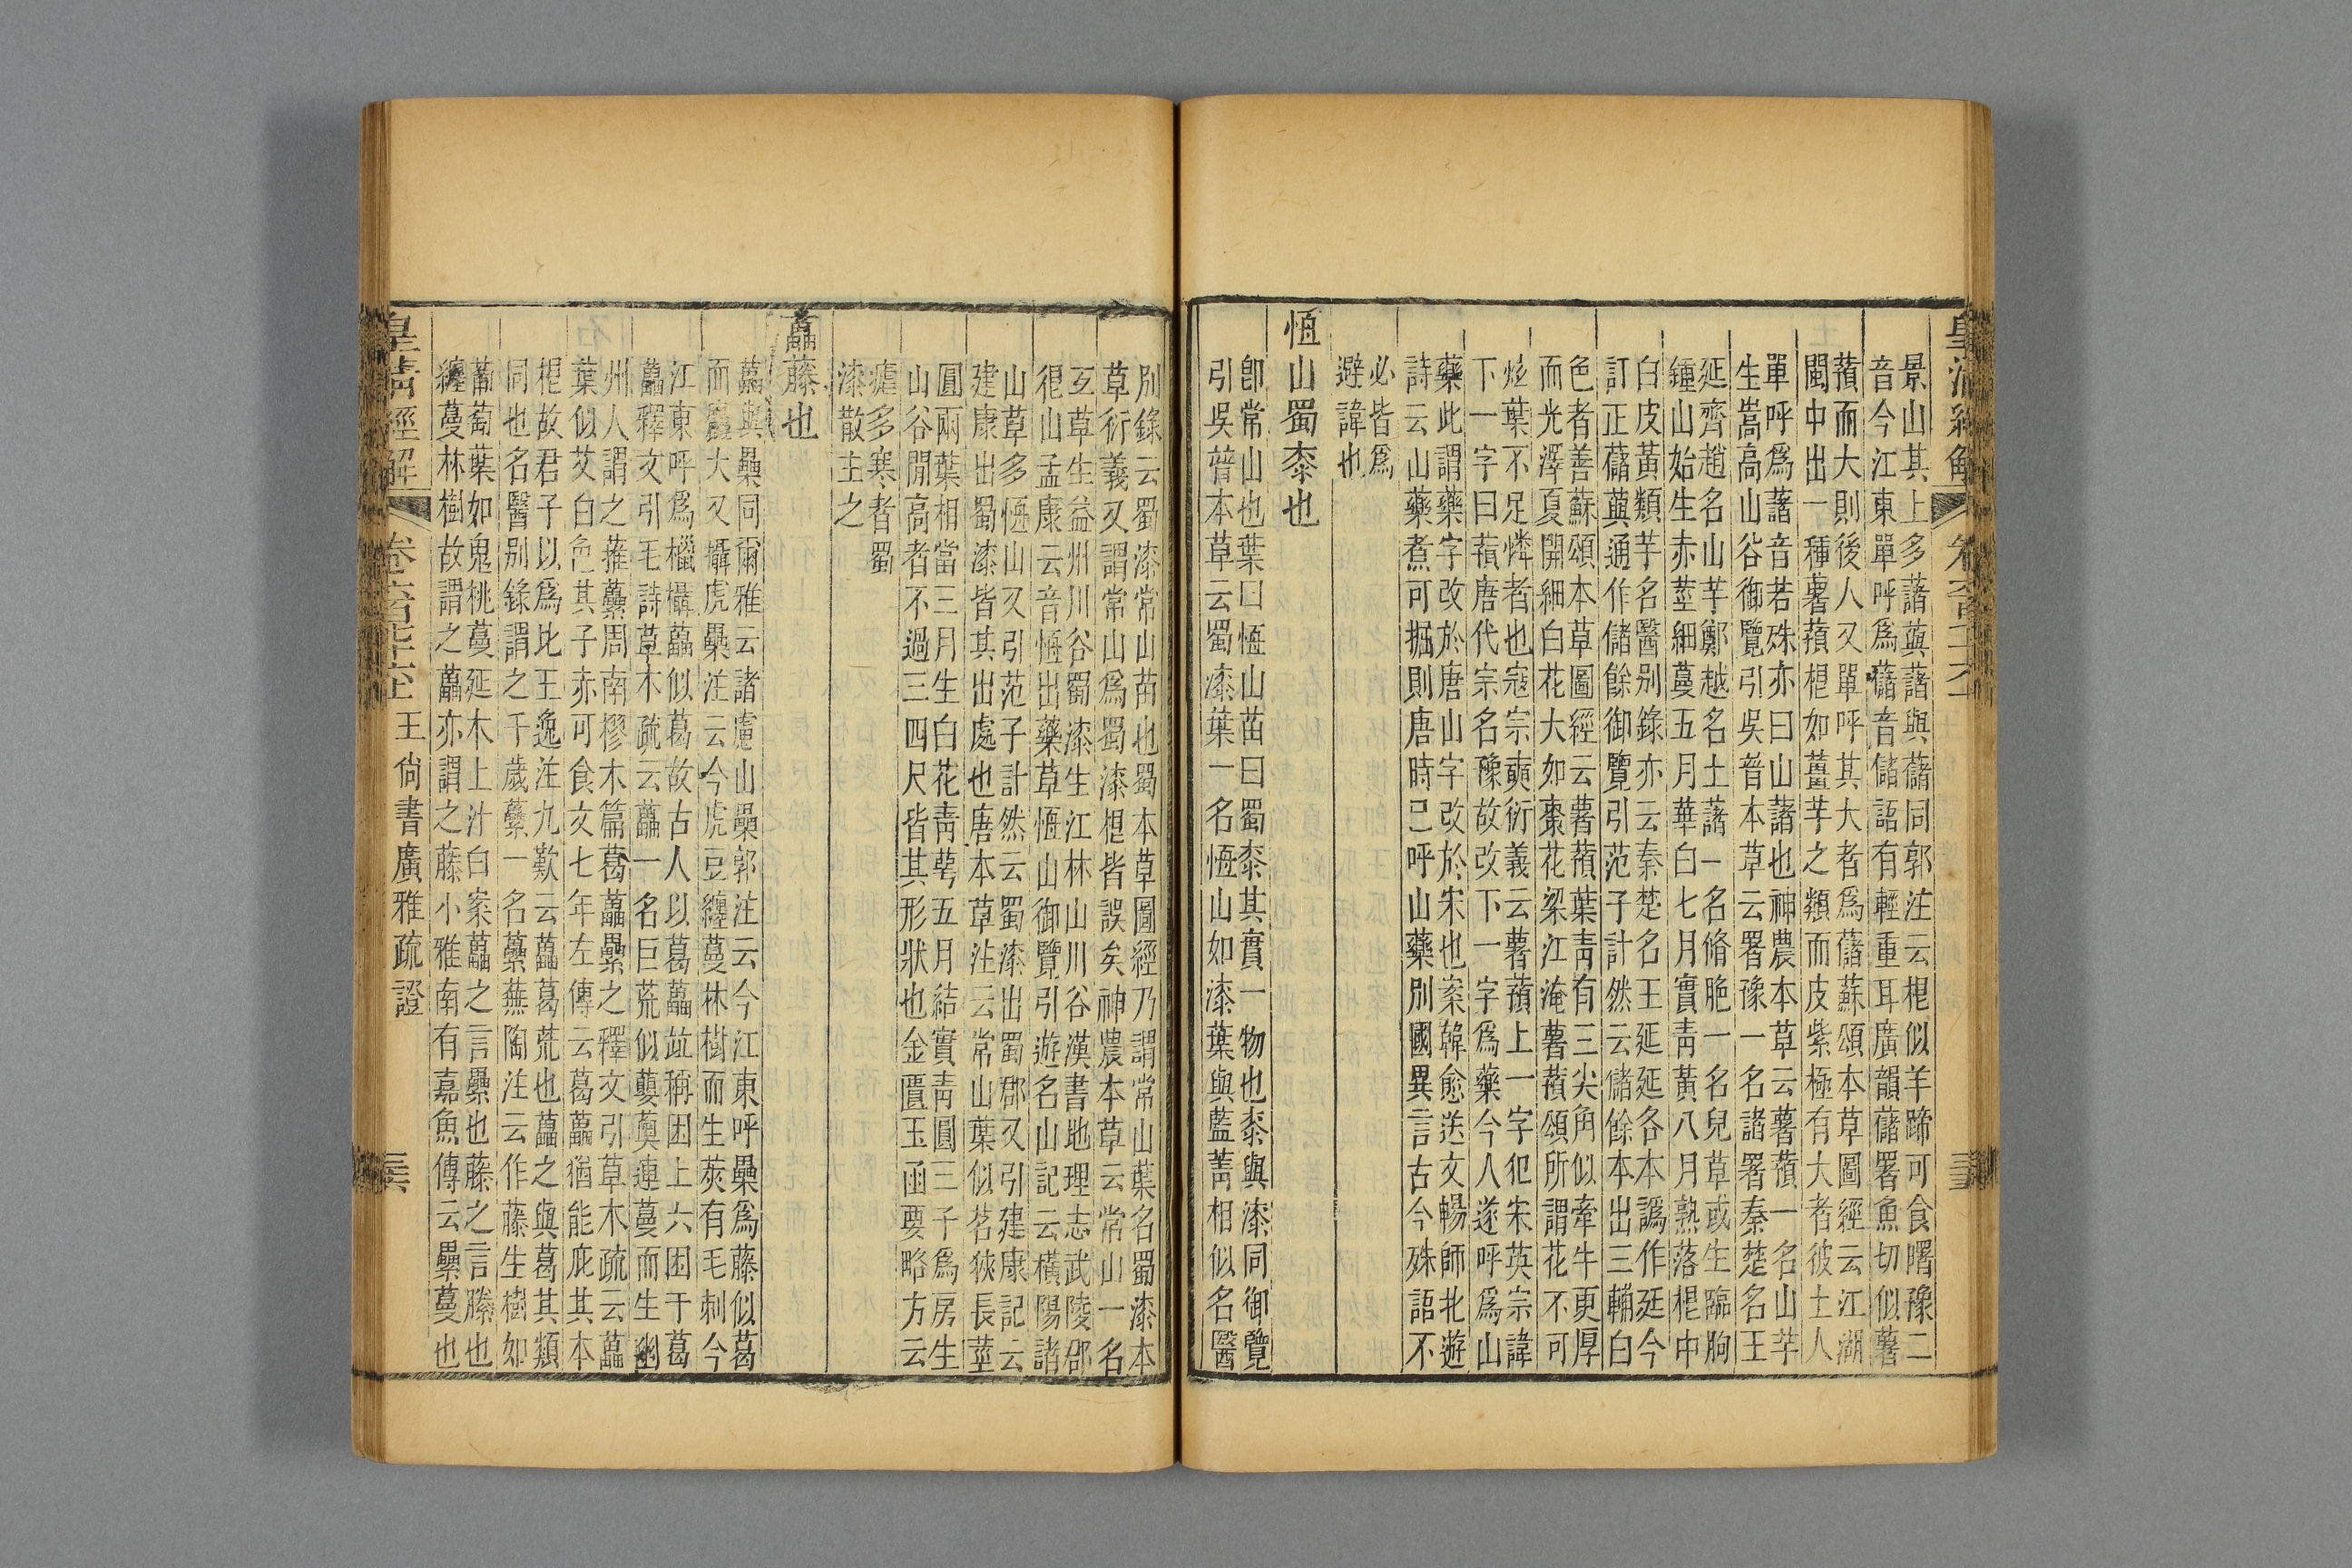 皇清經解
景山其上多藷藇藷與䕜同郭注云根似羊蹄可食曙豫二
音今江東單呼爲䕜音儲語有輕重耳廣韻䕜署魚切似薯
蕷而大則後人又單呼其大者爲䕜蘇頌本草圖經云江湖
閩中出一種薯蕷根如薑芋之類而皮紫極有大者彼土人
單呼爲藷音若殊亦曰山藷也神農本草云薯蕷一名山芋
生嵩高山谷御覽引吳普本草云署豫一名諸署秦楚名王
延齊趙名山芋鄭越名土藷一名脩脆一名兒草或生臨朐
鍾山始生赤莖細蔓五月華白七月實靑黃八月熟落根中
白皮黃類芋名醫別錄亦云秦楚名王延延各本譌作㢟今
訂正䕜藇通作儲餘御覽引范子計然云儲餘本出三輔白
色者善蘇頌本草圖經云薯蕷葉靑有三尖角似牽牛更厚
而光澤夏開細白花大如棗花梁江淹薯蕷頌所謂花不可
炫葉不足憐者也寇宗奭衍義云薯蕷上一字犯宋英宗諱
下一字曰蕷唐代宗名豫故改下一字爲藥今人遂呼爲山
藥此謂藥字改於唐山字改於宋也案韓愈送文暢師北遊
詩云山藥煮可掘則唐時已呼山藥別國異言古今殊語不
必皆爲
避諱也
恆山蜀桼也
卽常山也葉曰恆山苗曰蜀桼其實一物也桼與漆同御覽
引吳普本草云蜀漆葉一名恆山如漆葉與藍菁相似名醫
別錄云蜀漆常山苗也蜀本草圖經乃謂常山葉名蜀漆本
草衍義又謂常山爲蜀漆根皆誤矣神農本草云常山一名
互草生益州川谷蜀漆生江林山川谷漢書地理志武陵郡
佷山孟康云音恆出藥草恆山御覽引遊名山記云橫陽諸
山草多恆山又引范子計然云蜀漆出蜀郡又引建康記云
建康出蜀漆皆其出處也唐本草注云常山葉似茗狹長莖
圓兩葉相當三月生白花靑萼五月結實靑圓三子爲房生
山谷閒高者不過三四尺皆其形狀也金匱玉函要略方云
瘧多寒者蜀
漆散主之
藟藤也
藟與櫐同爾雅云諸慮山櫐郭注云今江東呼櫐爲藤似葛
而麤大又欇虎櫐注云今虎豆纏蔓林樹而生莢有毛刺今
江東呼爲㯿欇藟似葛故古人以葛藟竝稱困上六困于葛
藟釋文引毛詩草木疏云藟一名巨荒似蘡薁連蔓而生幽
州人謂之蓷藟周南樛木篇葛藟纍之釋文引草木疏云藟
葉似艾白色其子赤可食文七年左傳云葛藟猶能庇其本
根故君子以爲比王逸注九歎云藟葛荒也藟之與葛其類
同也名醫別錄謂之千歲虆一名虆蕪陶注云作藤生樹如
葡萄葉如鬼桃蔓延木上汁白案藟之言纍也藤之言縢也
纏蔓林樹故謂之藟亦謂之藤小雅南有嘉魚傳云纍蔓也
皇清經解
王尙書廣雅疏證